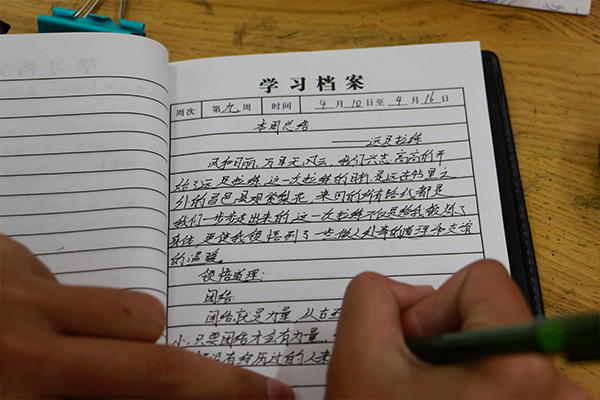 学习档案
周次 第九周 时间 4月10日至4月16日
本周总结
——远足拉练
风和日丽,万里无风云,我们兴志高高的开
始了远足拉练,这一次拉练的目的是远在45里之
外的 县观赏梨花,来回的所有路代都是
我们一步步走出来的,这一次拉练不仅是给我锻炼了
身体,更使我领悟到了一些做人处事的道理和友谊
的温暖。
领悟道理:
团结:
团结就是力量,从古至
小,只要团结才会有力量,
没有经历过的人来